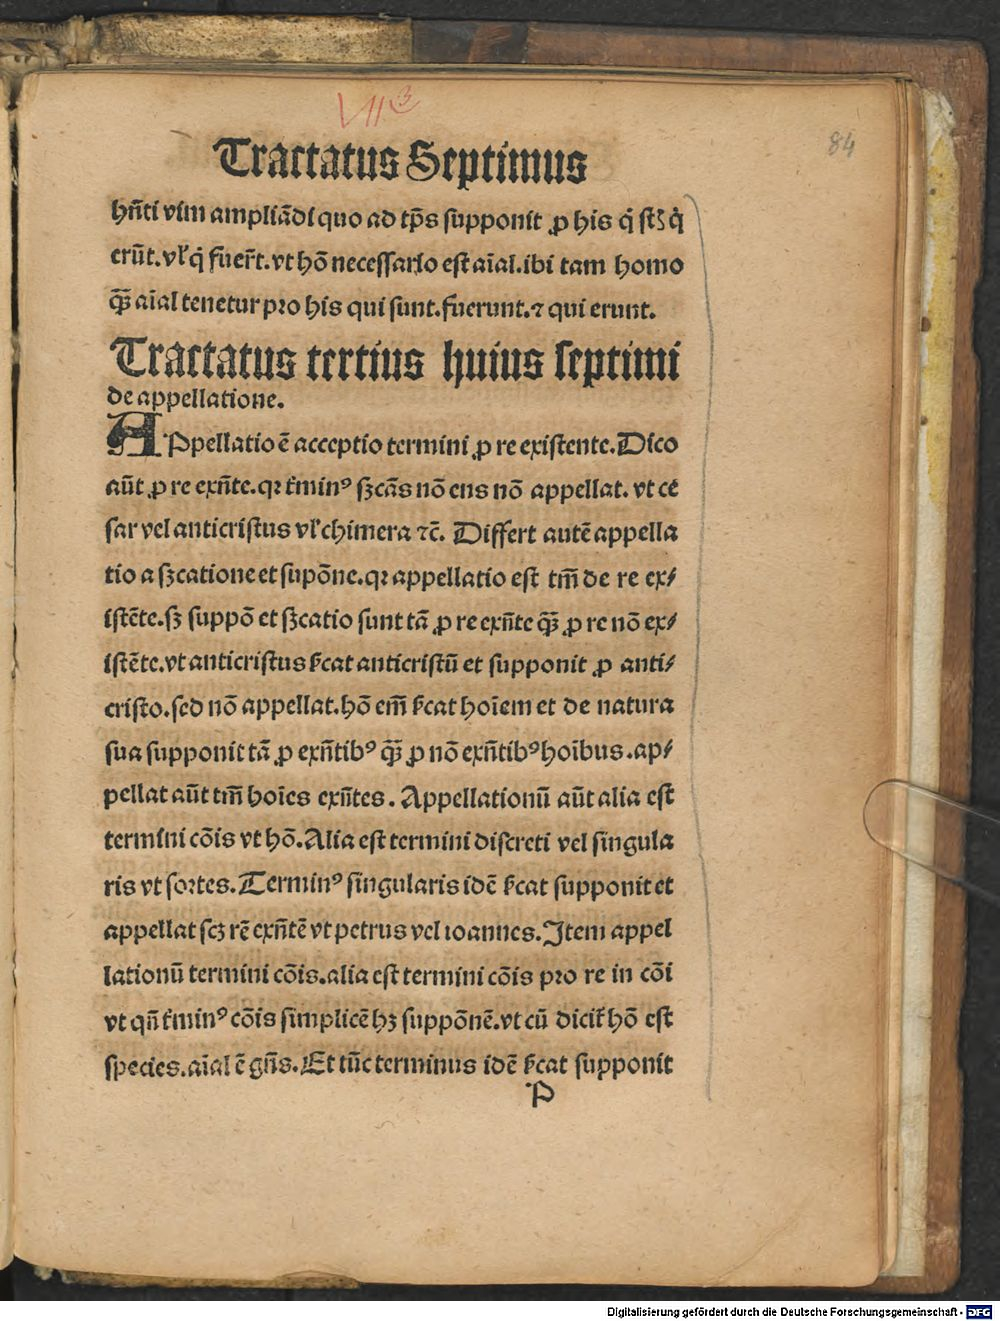 VII 3
84
Tractatus Septimus
hn̄ti vim ampliādi quo ad tp̄s supponit ꝓ his q̇ stꝫ q̇
erūt. vl̓ q̇ fuer̄t. vt hō necessario est aīal. ibi tam homo
qꝫ̄ aīal tenetur pro his qui sunt. fuerunt. ⁊ qui erunt.
Tractatus tertius huius septimi
de appellatione.
APpellatio ē acceptio termini ꝓ re existente. Dico
aūt ꝓ re exn̄te. qꝛ t̓minꝰ sꝫcās nō ens nō appellat. vt ce
sar vel anticristus vl̓ chimera ⁊c̄. Differt autē appella
tio a sꝫcatione et supōne. qꝛ appellatio est tm̄ de re ex/
istēte. sꝫ suppō et sꝫcatio sunt tā ꝓ re exn̄te qꝫ̄ ꝓ re nō ex/
istēte. vt anticristus s̓cat anticristū et supponit ꝓ anti/
cristo. sed nō appellat. hō em̄ s̓cat hoīem et de natura
sua supponit tā ꝓ exn̄tibꝰ qꝫ̄ ꝓ nō exn̄tibꝰ hoībus. ap/
pellat aūt tm̄ hoīes exn̄tes. Appellationū aūt alia est
termini cōis vt hō. Alia est termini discreti vel singula
ris vt sortes. Terminꝰ singularis idē s̓cat supponit et
appellat scꝫ rē exn̄tē vt petrus vel ioannes. Item appel
lationū termini cōis. alia est termini cōis pro re in cōi
vt qn̄ t̓minꝰ cōis simplicē hꝫ suppōnē. vt cū dicit̓ hō est
species. aīal ē gn̄s. Et tūc terminus idē s̓cat supponit
P
Digitalisierung gefördert durch die Deutsche Forschungsgemeinschaft - DFG